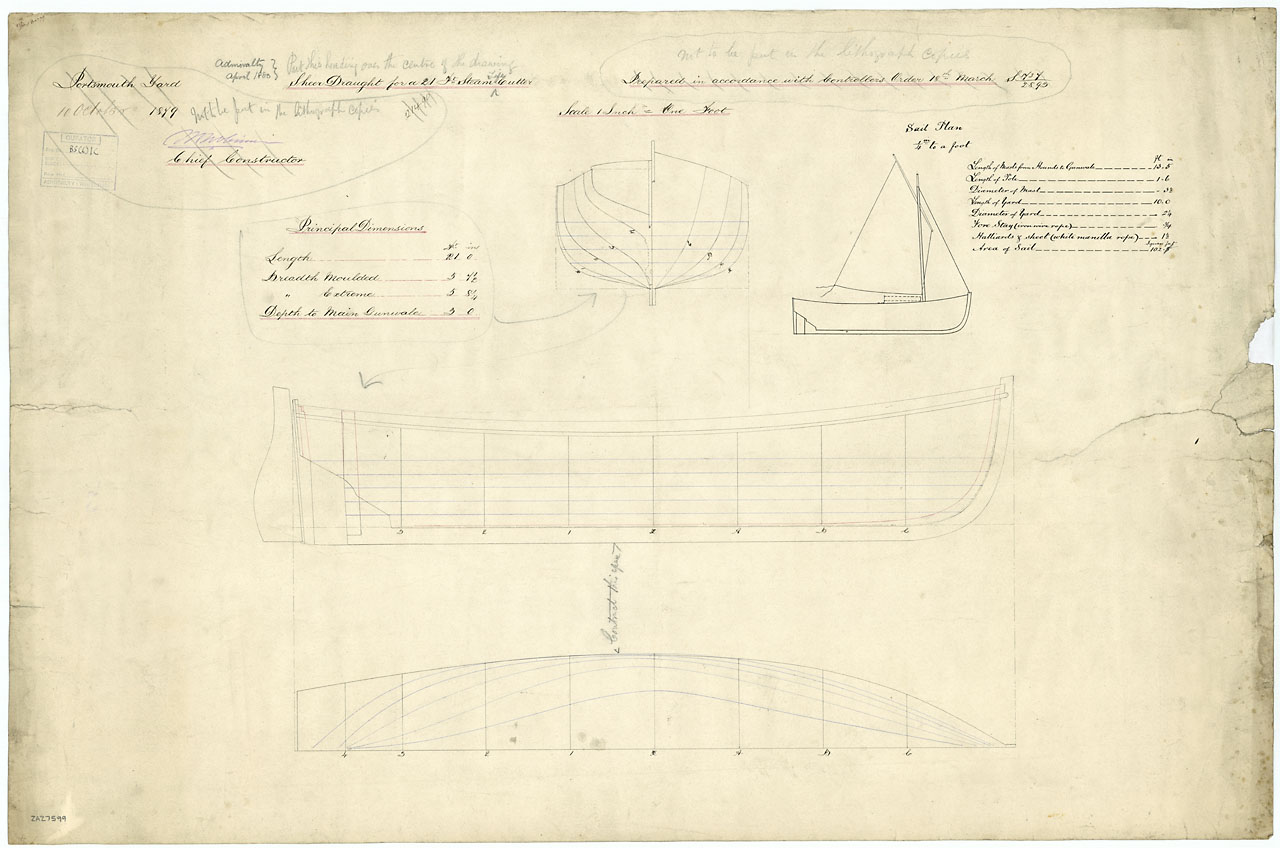 Admiralty
April 1880
Put this heading over the centre of the drawing
Not to be put in the lithograph copies
Portsmouth Yard
Sheer Draught for a 21 Ft Steam Cutter
Prepared in accordance with Controllers Order 18th March S 737/2895
10 October 1879
Not to be put in the lithograph copies
Scale 1 Inch = One Foot
Chief Constructor
BS(W)1C
Sail Plan
1/4 in to a foot
ft in
Length of Mast from Hounds to Gunwale 13.5
Length of Pole 1.6
Diameter of Mast
Length of Yard 10.0
Diameter of Yard
Fore Stay (iron wire rope) 3/4
Halliards & sheet (white manilla rope)
Area of Sail
Principal Dimensions
Ft ins
Length 21 0
Breadth Moulded 5
" Extreme 5 8 1/4
Depth to Main Gunwale 3 0
3 2 1 A B C
Contract this space
4 3 2 1 A B C
ZAZ7599